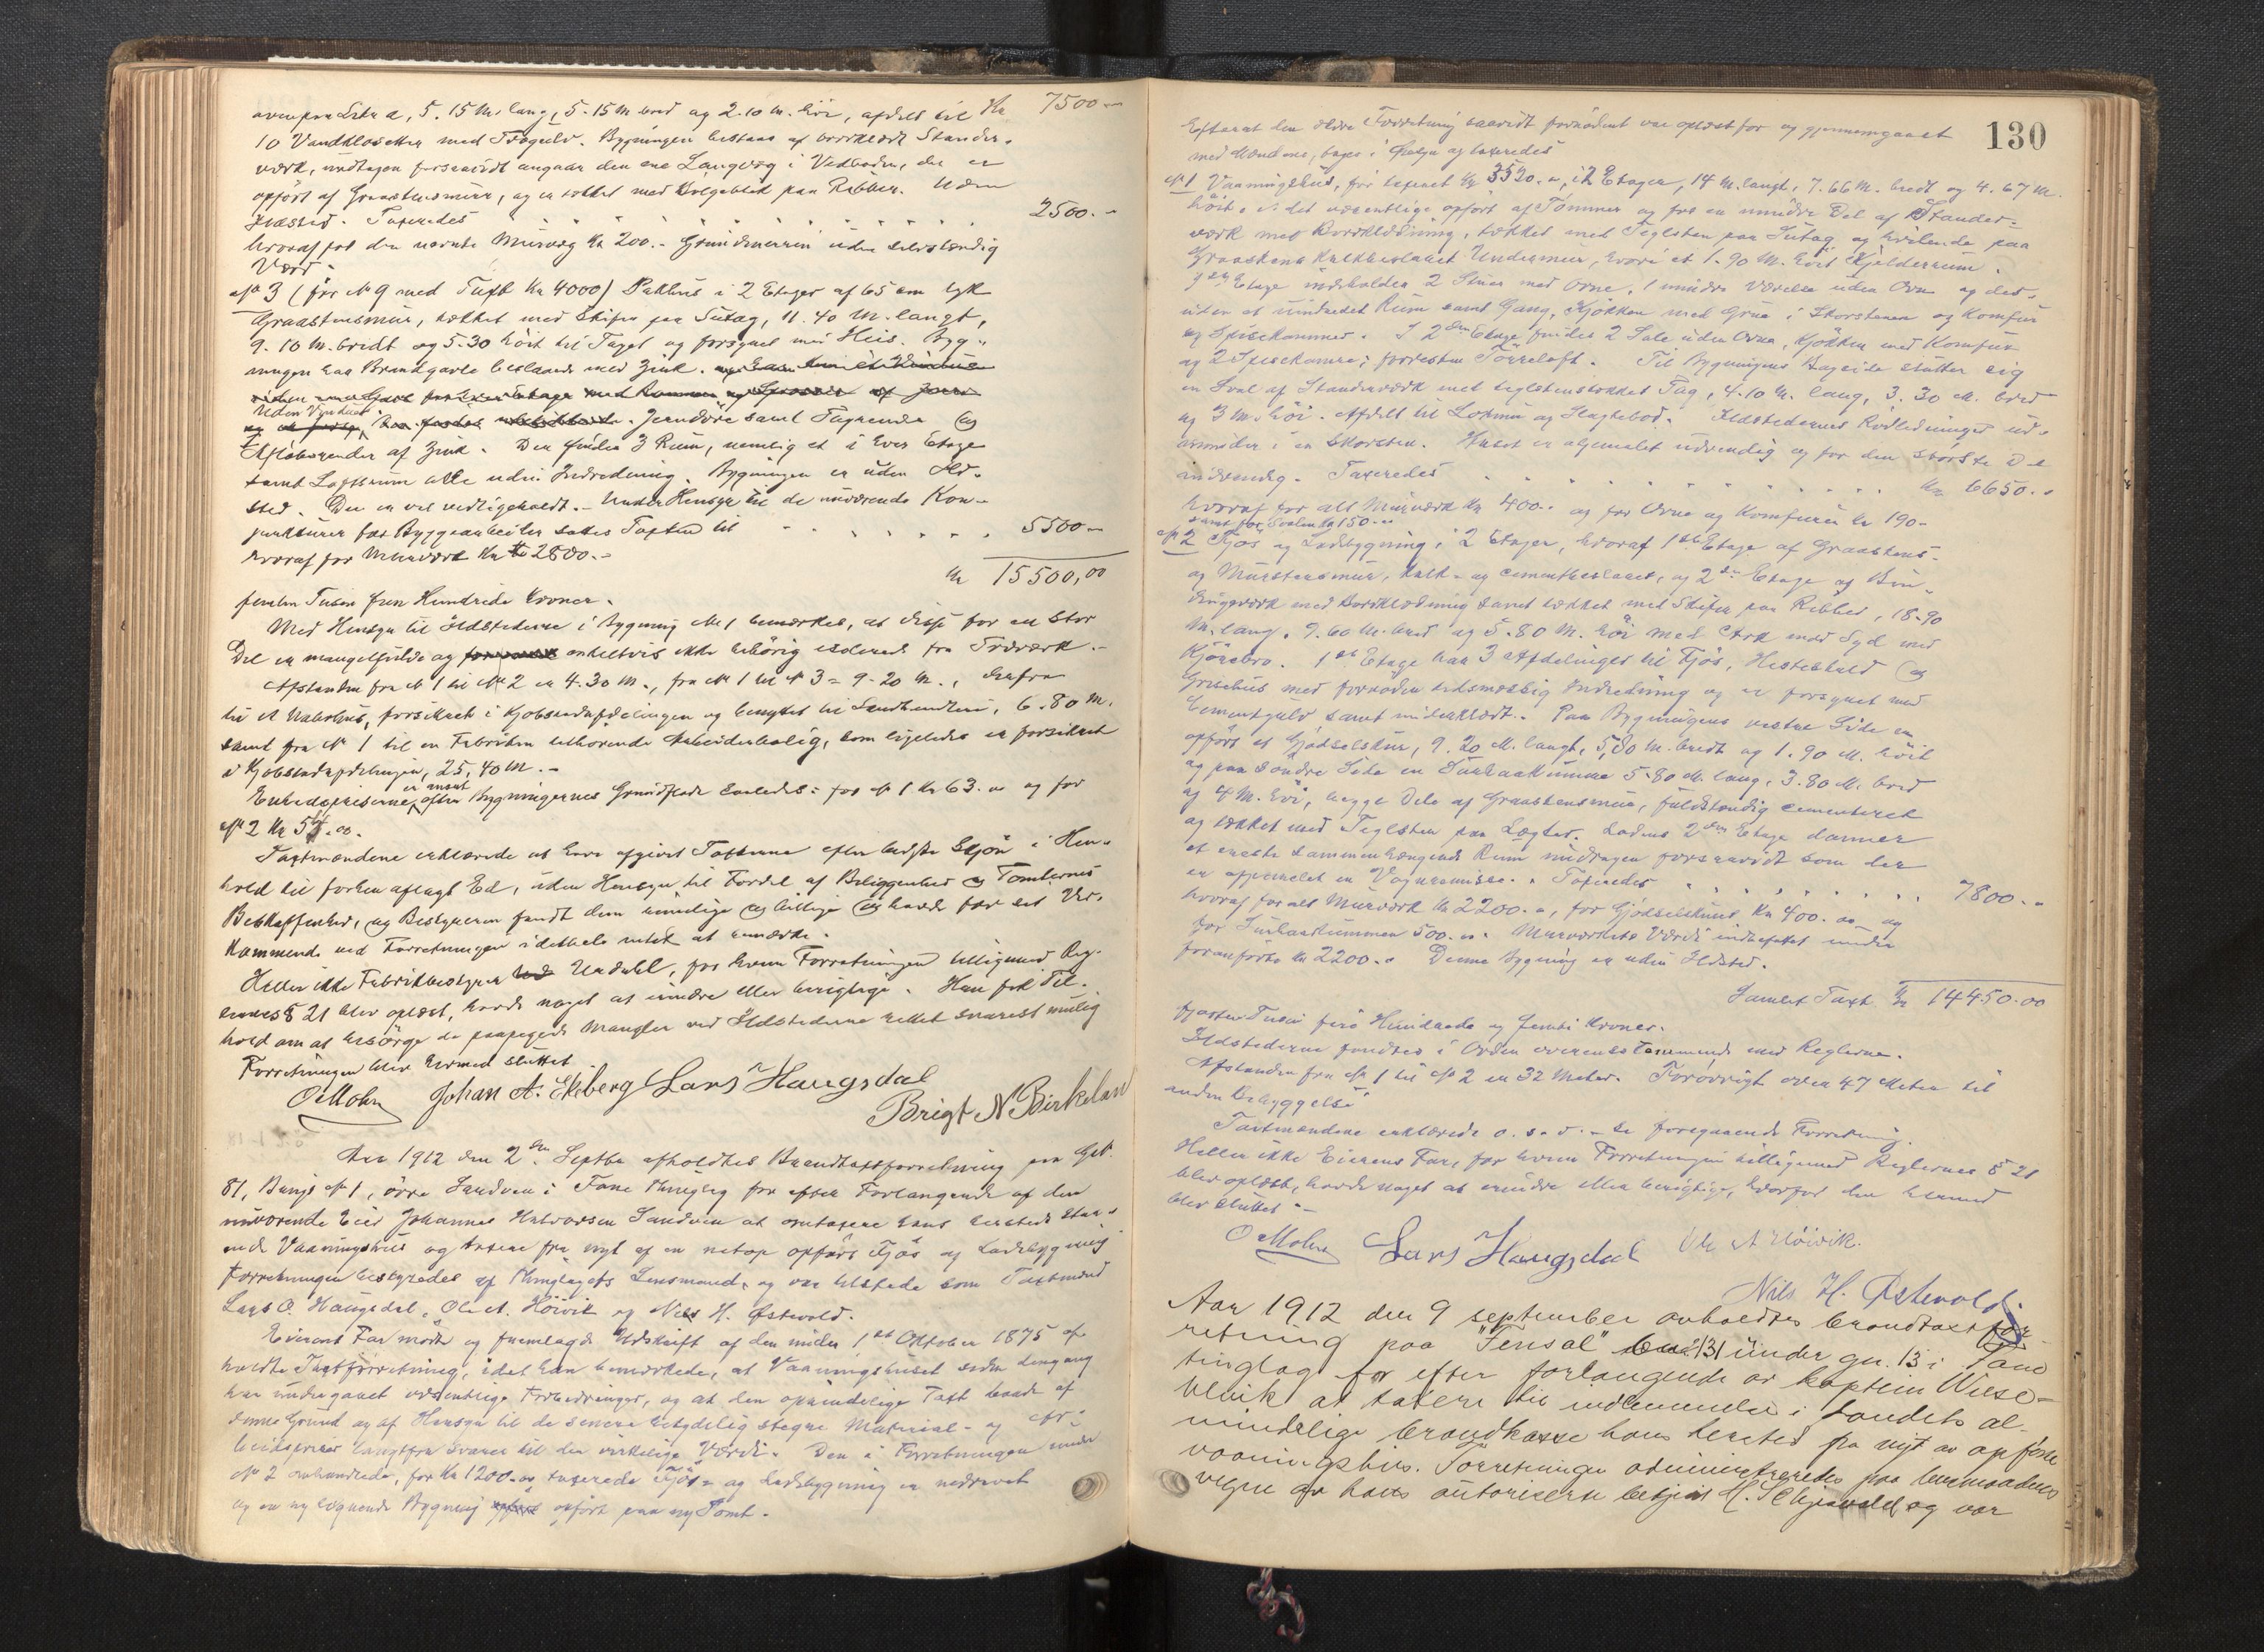 ovenpaa Litra a, 5.15 M. lang, 5.15 M bred og 2.10 M. höi, afdelt til Kr. 7500.-
10 Vandklosetter med Trægulv. Bygningen bestaar af bordklædt Stander-
værk, undtagen forsaavidt angaar den ene Langvæg i Vedboden, der er
opført af Graastensmur, og er tækket med Bølgeblik paa Ribber. Uden
Ildsted. Taxeredes 2500.-
hvoraf for den nævnte Murvæg Kr 200.- Grundmuren uden selvstændig
Værd.
No 3 (för No 9 med Taxt Kr 4000) Pakhus i 2 Etager af 65 cm tyk
Graastensmur, tækket med Skifer paa Sutag, 11.40 M. langt,
9.10 M. bredt og 5.30 höit til Taget og forsynet med Heis. Byg-
ningen har Brandgavle beslaaede med Zink.
Uden Vinduer
Jerndöre samt Tagrender og
Afløbsrender af Zink. Der findes 3 Rum, nemlig et i hver Etage
samt Loftsrum alle uden Indredning. Bygningen er uden Ild-
sted. Den er vel vedligeholdt. - Under Hensyn til de nuværende Kon-
junkturer for Byggearbeider sattes Taxten til 5500.-
hvoraf for Murværk Kr 2800.-
Kr 15500,00
femten Tusen fem Hundrede Kroner.
Med Hensyn til Ildstederne i Bygning No 1 bemærkes, at disse for en stor
Del er mangelfulde og enkeltvis ikke behörig isolerede fra Træværk.-
Afstanden fra No 1 til No 2 er 4.30 M., fra No 1 til No 3 = 9.20 M., derfra
til et Nabohus, forsikret i Kjöbstadafdelingen og benyttet til Landhandleri, 6.80 M.
samt fra No 1 til en Fabriken tilhörende Arbeiderbolig, som ligeledes er forsikret
i Kjöbstadafdelingen, 25,40 M.-
Enhedspriserne er ansat efter Bygningernes Grundflade saaledes: for No 1 Kr 63.00 og for
No 2 Kr 54.00.
Taxtmændene erklærede at have afgivet Taxterne efter bedste Skjön i Hen-
hold til forhen aflagt Ed, uden Hensyn til Fordel af Beliggenhed og Tomternes
Beskaffenhed, og Bestyreren fandt dem rimelige og billige og havde for sit Ved-
kommende ved Forretningen idethele intet at bemærke.
Heller ikke Fabrikbestyrer Urdahl, for hvem Forretningen tilligemed Reg-
lernes § 21 blev oplæst, havde noget at erindre eller berigtige. Han fik Til-
hold om at besörge de paapegede Mangler ved Ildstederne rettet snarest mulig
Forretningen blev hermed sluttet.
O Mohn Johan A. Ekeberg Lars Haugsdal
Brigt N Birkeland
Aar 1912 den 2den Septbr afholdtes Brandtaxtforretning paa Gd.
81, Bunds No 1, övre Sandven i Fane Thinglag for efter Forlangende af den
nuværende Eier Johannes Halvorsen Sandven at omtaxere hans hersteds staa-
ende Vaaningshus og taxere fra nyt af en netop opført Fjös og Ladebygning
Forretningen bestyredes af Thinglagets Lensmand, og var tilstede som Taxtmænd
Lars O. Haugsdal, Ole A. Höivik og Nils H. Østevold.
Eierens Far mødte og fremlagde Udskrift af den under 1ste Oktober 1875 af-
holdte Taxtforretning, idet han bemærkede, at Vaaningshuset siden dengang
har undergaaet væsentlige Forbedringer, og at den oprindelige Taxt baade af
denne Grund og af Hensyn til de senere betydelig stegne Material- og Ar-
beidspriser langtfra svarer til den virkelige Værdi. Den i Forretningen under
No 2 omhandlede, for Kr 1200.00 taxerede Fjös- og Ladebygning er nedrevet
og en ny lignende Bygning opført paa ny Tomt.
130
Efterat den ældre Forretning saavidt fornødent var oplæst for og gjennemgaaet
med Mændene, toges i Øiesyn og taxeredes
No 1 Vaaningshus, för taxeret Kr 3520.-, i 2 Etager, 14 M. langt, 7.66 M. bredt og 4.67 M.
höit, i det væsentlige opført af Tømmer og for en mindre Del af Stander-
værk med Bordklædning, tækket med Teglsten paa Sutag og hvilende paa
Graastens kalkbeslaaet Undermur, hvori et 1.90 M. höit Kjelderrum.
1ste Etage indeholder 2 Stuer med Ovne, 1 mindre Værelse uden Ovn og des-
uden et uindredet Rum samt Gang, Kjökken med Grue i Skorstenen og Komfur
og Spisekammer. I 2den Etage findes 2 Sale uden Ovne, Kjökken med Komfur
og 2 Spisekamre; forresten Törreloft. Til Bygningens Bagside stötter sig
en Sval af Standerværk med teglstenstækket Tag, 4.10 M. lang, 3.30 M. bred
og 3 M. höi. Afdelt til Lokum og Slagtebod. Ildstedernes Rörledninger ud-
munder i en Skorsten. Huset er oljemalet udvendig og for den störste Del
indvendig. Taxeredes Kr. 6650.-
hvoraf for alt Murværk Kr 400.- og for Ovne og Komfurer Kr 190.-
samt for Svalen Kr 150.-
No 2 Fjös og Ladebygning i 2 Etager, hvoraf 1ste Etage af Graastens-
og Murstensmur, kalk- og cementbeslaaet, og 2den Etage af Bin-
dingsværk med Bordklædning samt tækket med Skifer paa Ribber, 18.90
M. lang, 9.60 M. bred og 5.80 M. höi med Ark mod Syd med
Kjörebro. 1ste Etage har 3 Afdelinger til Fjös, Hestestald og
Grisehus med fornøden tidsmæssig Indredning og er forsynet med
Cementgulv samt underklædt. Paa Bygningens vestre Side er
opført et Gjødselskur, 9.20 M. langt, 5,80 M. bredt og 1.90 M. höit
og paa söndre Side en Surhaakumme 5.80 M. lang, 3.80 M. bred
og 4 M. höi, begge Dele af Graastensmur, fuldstændig cementeret
og tækket med Teglsten paa Lægter. Ladens 2den Etage danner
et eneste sammenhængende Rum undtagen forsaavidt som der
er afpanelet en Vognremisse. Taxeredes 7800.-
hvoraf for alt Murværk Kr 2200.-, for Gjødselskuret Kr 400.00 og
for Surhaakummen 500.-. Murværkets Værdi indbefattet under
foranførte Kr 2200.- Denne Bygning er uden Ildsted.
Samlet Taxt Kr 14450.00
fjorten Tusen fire Hundrede og femti Kroner.
Ildstederne fandtes i Orden overensstemmende med Reglerne.
Afstanden fra No 1 til No 2 er 32 Meter. Forøvrigt over 47 Meter til
anden Bebyggelse
Taxtmændene erklærede o.s.v. - se foregaaende Forretning.
Heller ikke Eierens Far, for hvem Forretningen tilligemed Reglernes § 21
blev oplæst, havde noget at erindre eller berigtige, hvorfor den hermed
blev sluttet.-
O Mohn Lars Haugsdal Ole A Höivik.
Nils H. Østevold.
Aar 1912 den 9 september avholdtes brandtaxtfor-
retning paa "Fensal" bn. 131 under gn. 13 i Fane
tinglag for efter forlangende av kaptein Wiese-
 at taxere til indlemmelse i Landets al-
mindelige brandkasse hans hersted fra nyt av opførte
vaaningshus. Forretningen administreredes paa lensmandens
vegne av hans autoriserte betjent og var